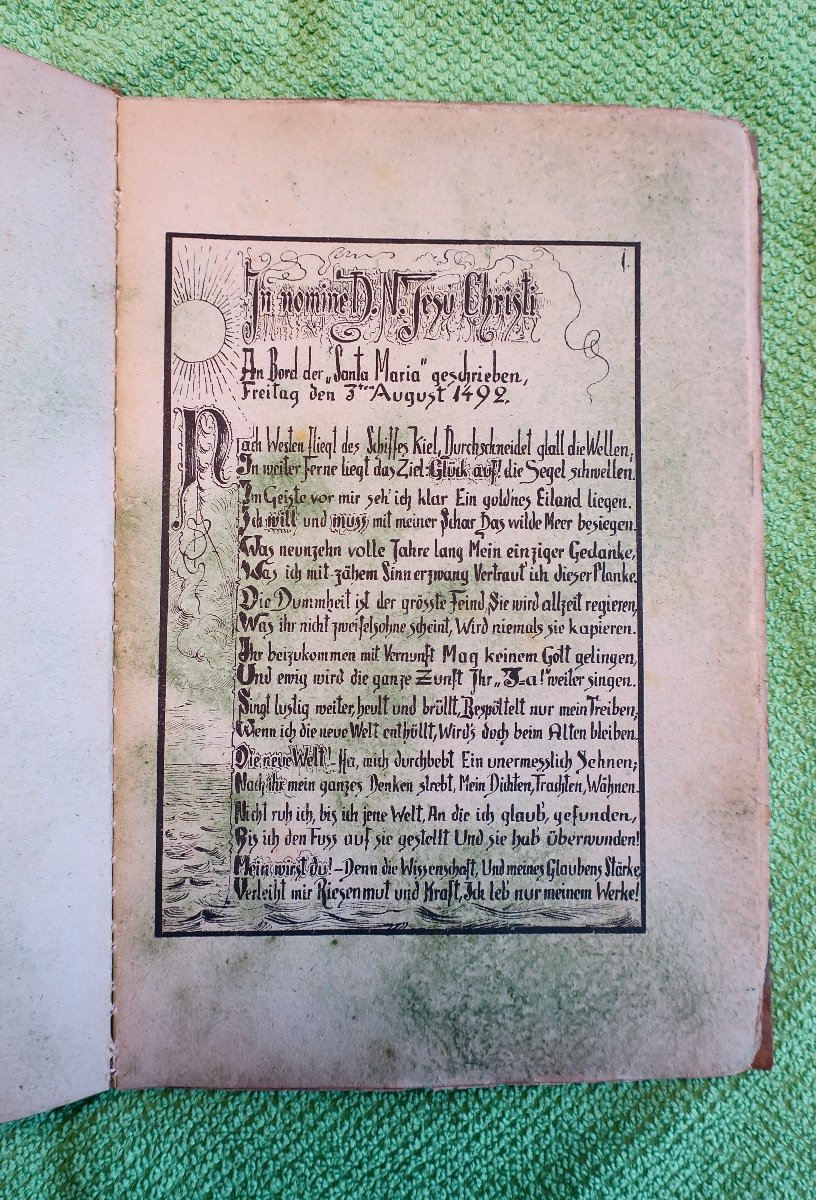 1.
In nomine D. N. Jesu Christi
An Bord der „Santa Maria" geschrieben,
Freitag den 3ten August 1492.
Nach Westen fliegt des Schiffes Kiel, Durchschneidet glatt die Wellen;
In weiter Ferne liegt das Ziel: Glück auf! die Segel schwellen.
Im Geiste vor mir seh' ich klar Ein gold'nes Eiland liegen.
Ich will und muss mit meiner Schar Das wilde Meer besiegen.
Was neunzehn volle Jahre lang Mein einziger Gedanke,
Was ich mit zähem Sinn erzwang Vertraut' ich dieser Planke.
Die Dummheit ist der grösste Feind, Sie wird allzeit regieren,
Was ihr nicht zweifelsohne scheint, Wird niemals sie kapieren.
Ihr beizukommen mit Vernunft Mag keinem Gott gelingen,
Und ewig wird die ganze Zunft Ihr „I-a!" weiter singen.
Singt lustig weiter, heult und brüllt, Bespöttelt nur mein Treiben;
Wenn ich die neue Welt enthüllt, Wird's doch beim Alten bleiben.
Die neue Welt! - Ha, mich durchbebt Ein unermesslich Sehnen;
Nach ihr mein ganzes Denken strebt, Mein Dichten, Trachten, Wähnen.
Nicht ruh ich, bis ich jene Welt, An die ich glaub', gefunden,
Bis ich den Fuss auf sie gestellt Und sie hab' überwunden!
Mein wirst du! - Denn die Wissenschaft, Und meines Glaubens Stärke,
Verleiht mir Riesenmut und Kraft, Ich leb' nur meinem Werke!